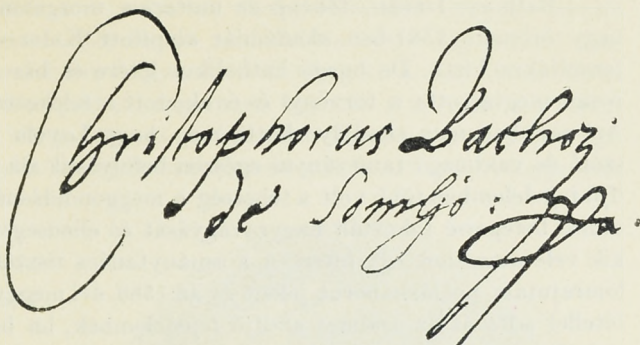 Christophorus Bathori
de Somlio: